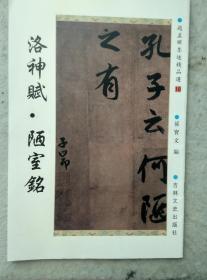 趙孟頫墨迹精品選
孫寶文 編
吉林文史出版社
孔子云何陋
之有
子昂
洛神賦·陋室銘